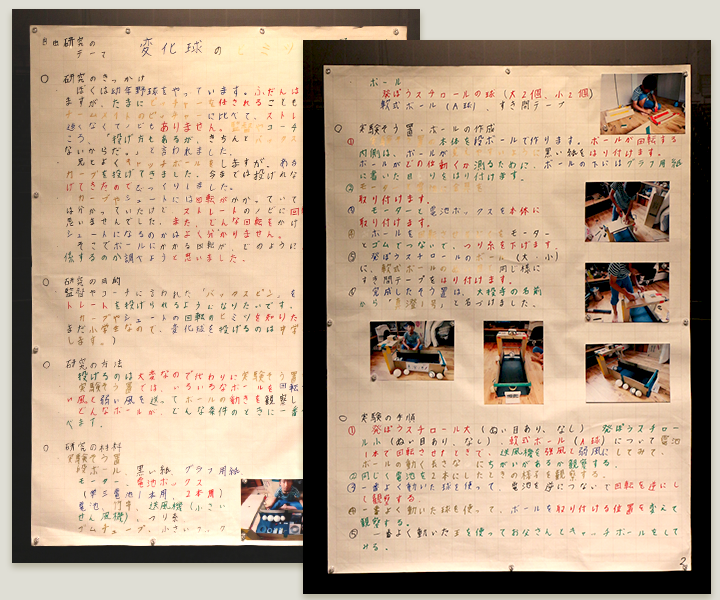 自由研究の
テーマ
変化球の
○ 研究のきっかけ
ぼくは幼年野球をやっています。ふだんは
ますが、たまにピッチャーを任されることも
チームメイトのピッチャーに比べて、ストレ
速くなくてノビもありません。監督やコーチ
ころ、投げ方もあるが、きちんとバックス
ないからだ。と言われました。
兄とよくキャッチボールをしますが、わざ
カーブを投げてきました。今までは投げれな
げてきたのでびっくりしました。
カーブやシュートには回転がかかっていて
は分かっていたけど ストレートのノビに回
思いませんでした。また、どんな回転をかけ
シュートになるのかはよく分かりません。
そこでボールにかかる回転が、どのように
係するのか調べようと思いました。
○ 研究の目的
監督やコーチに言われた「バックスピン」を
トレートを投げられるようになりたいです。
カーブやシュートの回転のヒミツを知りた
まだ小学生なので、変化球を投げるのは中学
します。)
○ 研究の方法
投げるのは大変なので代わりに実験そう置
実験そう置では、いろいろなボールを回転
い風と弱い風を送ってボールの動きを観察し
どんなボールが、どんな条件のときに一番
べます。
○ 研究の材料
実験そう置
段ボール 黒い紙 グラフ用紙
モーター、電池ボックス
(単三電池1本用 2本用)
電池 竹串、送風機(小さい
せん風機)、つり糸
ゴムチューブ、小さいフック
ボール
発ぽうスチロールの球(大2個、小2個)
軟式ボール(A球)、すき間テープ
○ 実験そう置・ボールの作成
① 本体を段ボールで作ります。ボールが回転する
内側は、ボールが 黒い紙をはり付けます。
ボールがどの位動くか測るために、ボールの下にはグラフ用紙
に書いた目もりをはり付けます。
②
取り付けます。
③ モーターと電池ボックスを本体に
取り付けます。
④ ボールを モーター
とゴムでつないで、つり糸を下げます。
⑤ 発ぽうスチロールのボール(大・小)
に、軟式ボールの 同じ様に
すき間テープをはり付けます。
⑥ 完成したそう置は、大投手の名前
から と名づけました。
○ 実験の手順
① 発ぽうスチロール大(ぬい目あり、なし) 発ぽうスチロー
ル小(ぬい目あり、なし)、軟式ボール(A球)について電池
1本で回転させたときて、送風機を強風と弱風にしてみて、
ボールの動く長さな にちがいがあるか観察する。
② 同じく電池を2本にしたときの様子を観察する
③ 一番よく動いた球を使って、電池を逆につないで回転を逆にし
て観察する。
④ 一番よく動いた球を使って、ボールを取り付ける位置を変えて
観察する。
⑤ 一番よく動いた玉を使ってお父さんとキャッチボールをして
みる。
2